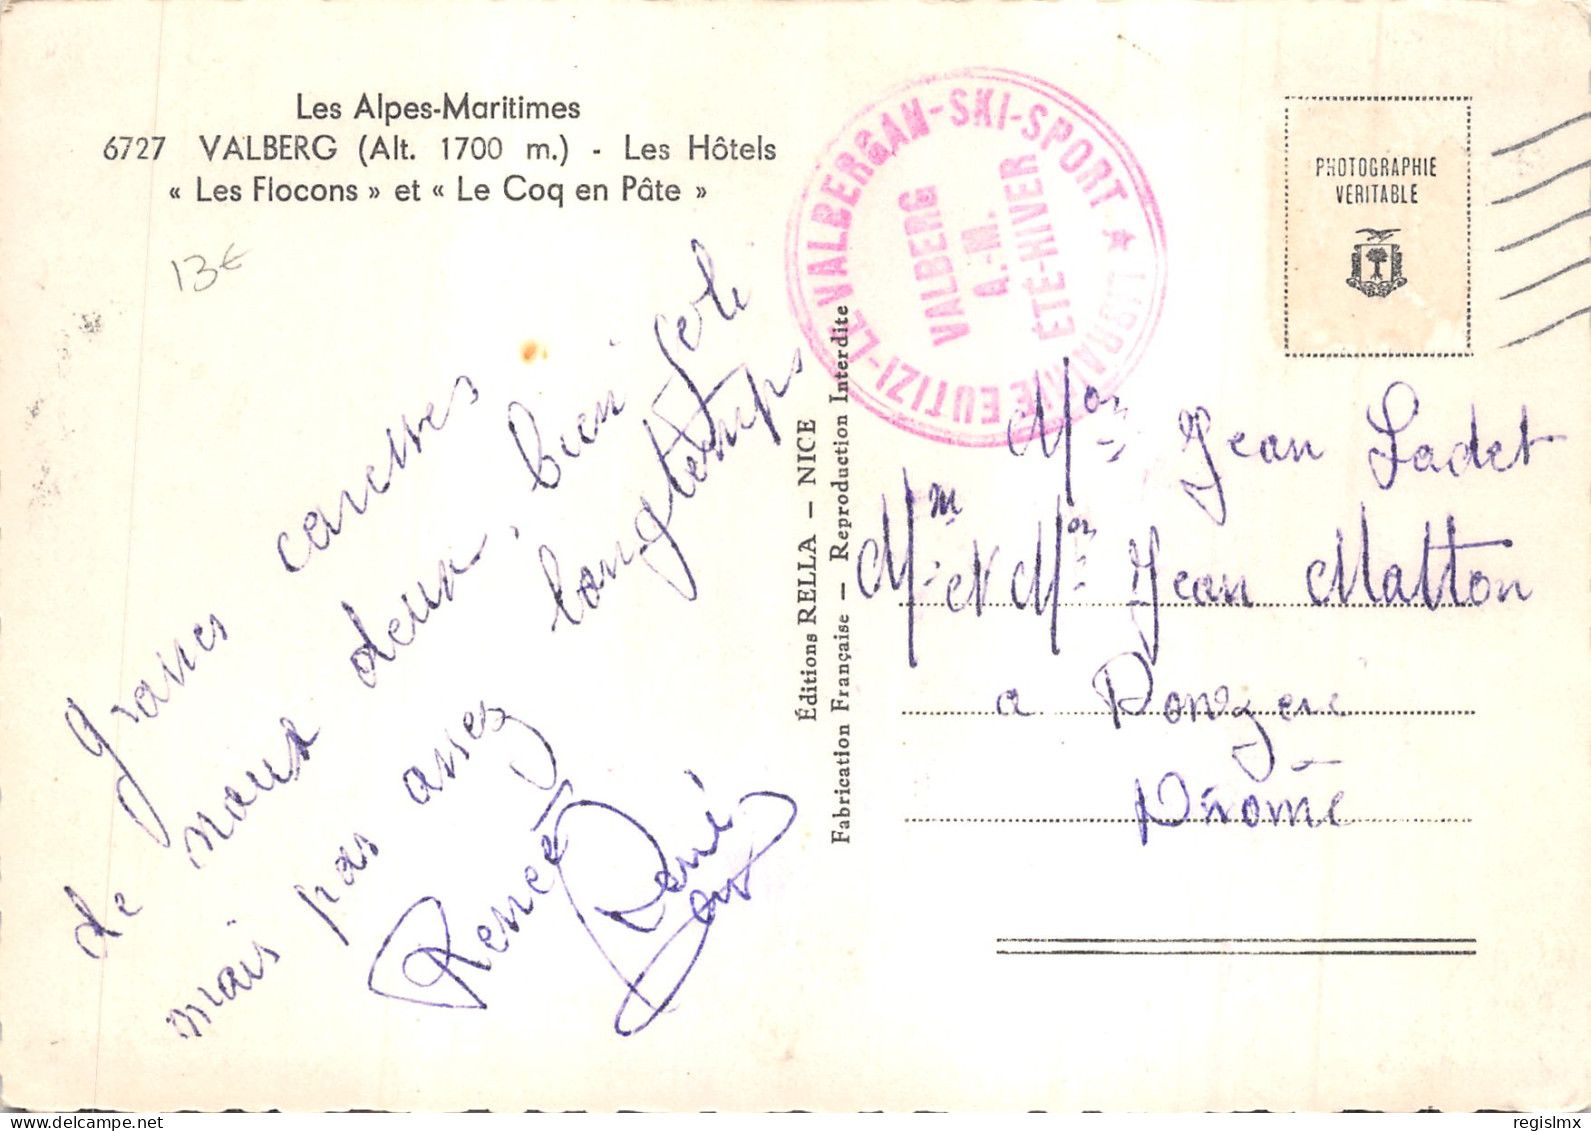 Les Alpes-Maritimes
6727 VALBERG (Alt. 1700 m.) - Les Hôtels
« Les Flocons » et « Le Coq en Pâte »
13€
grosses caresses
de nous deux, bien joli
mais pas assez longtemps
Renée
René
Éditions RELLA — NICE
Fabrication Française — Reproduction Interdite
LIBRAIRIE EUTIZI-LE VALBERGAN-SKI-SPORT ★
VALBERG
A.-M.
ÉTÉ-HIVER
PHOTOGRAPHIE
VERITABLE
Mr Jean Ladet
Mme et Mr Jean Matton
a Donzere
Drôme
regislmx